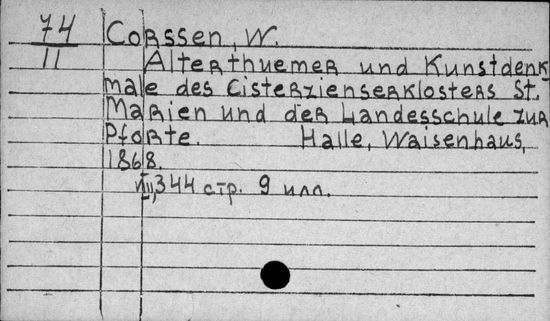 74
II
Corssen, W.
Alterthuemer und Kunstdenk
male des Cisterzienserklosters St.
Marien und der Landesschule zur
Pforte. Halle, Waisenhaus,
1868.
344 стр. 9 илл.